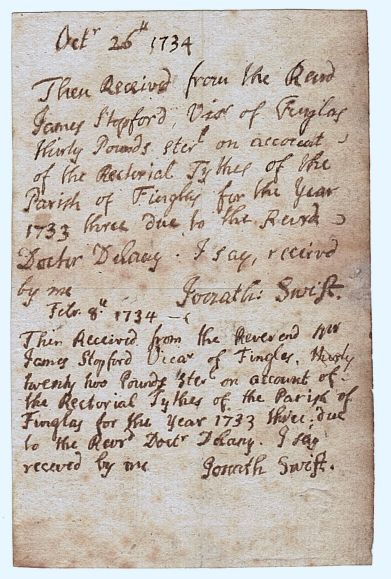 Octr 26th 1734
Then Received from the Revrd
James Stopford, Vicr of Finglas
thirty Pounds sterl on account
of the Rectorial Tythes of the
Parish of Finglas for the Year
1733 three due to the Revrd
Doctr Delany. I say, received
by me Jonath: Swift.
Febr. 8th 1734
Then Received from the Reverend Mr
James Stopford Vicar of Finglas, thirty
twenty two Pounds sterl on account of
the Rectorial Tythes of the Parish of
Finglas for the Year 1733 three; due
to the Revrd Doctr Delany. I say
received by me Jonath Swift.